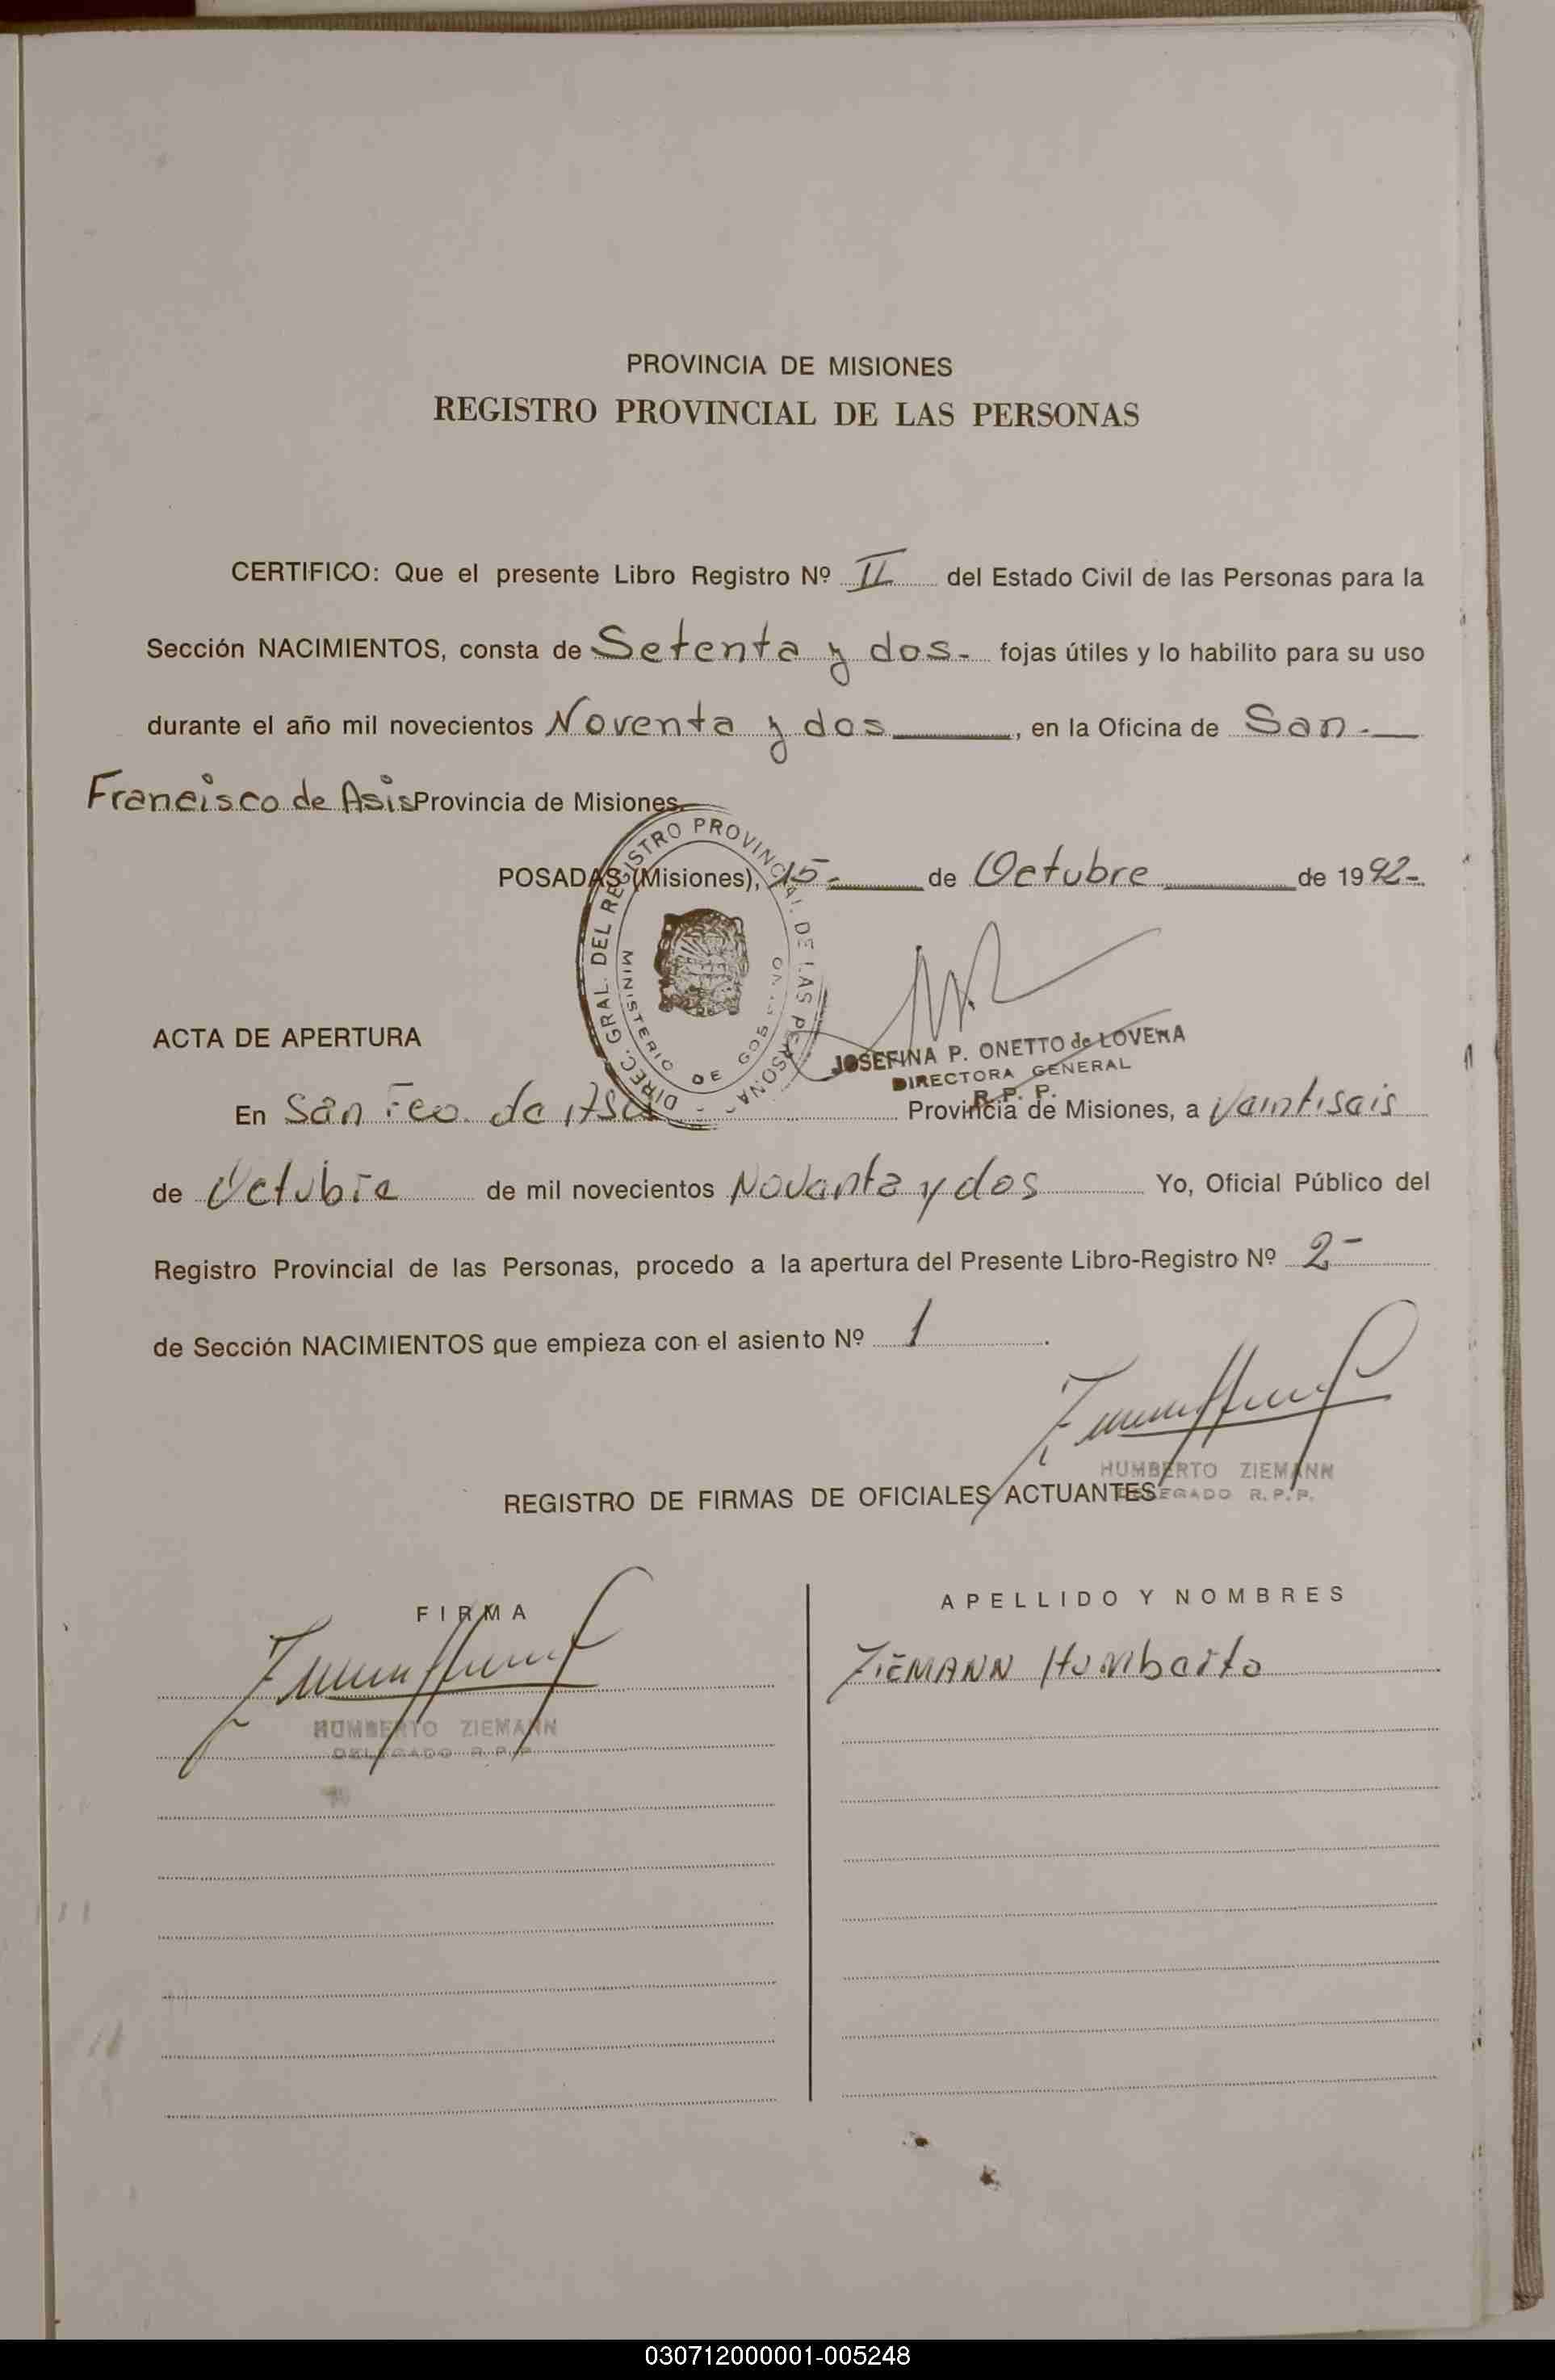 PROVINCIA DE MISIONES
REGISTRO PROVINCIAL DE LAS PERSONAS
CERTIFICO: Que el presente Libro Registro Nº II del Estado Civil de las Personas para la
Sección NACIMIENTOS, consta de Setenta y dos- fojas útiles y lo habilito para su uso
durante el año mil novecientos Noventa y dos, en la Oficina de San-
Francisco de Asis Provincia de Misiones.
POSADAS (Misiones), 15- de Octubre de 1992-
DIREC. GRAL. DEL REGISTRO PROVINCIAL DE LAS PERSONAS
MINISTERIO DE GOBIERNO
JOSEFINA P. ONETTO de LOVERA
DIRECTORA GENERAL
R. P. P.
ACTA DE APERTURA
En San Fco. de Asis Provincia de Misiones, a Veintiseis
de Octubre de mil novecientos Noventa y dos Yo, Oficial Público del
Registro Provincial de las Personas, procedo a la apertura del Presente Libro-Registro Nº 2-
de Sección NACIMIENTOS que empieza con el asiento Nº 1.
HUMBERTO ZIEMANN
DELEGADO R. P. P.
REGISTRO DE FIRMAS DE OFICIALES ACTUANTES
FIRMA
APELLIDO Y NOMBRES
ZIEMANN Humberto
HUMBERTO ZIEMANN
DELEGADO R. P. P.
030712000001-005248